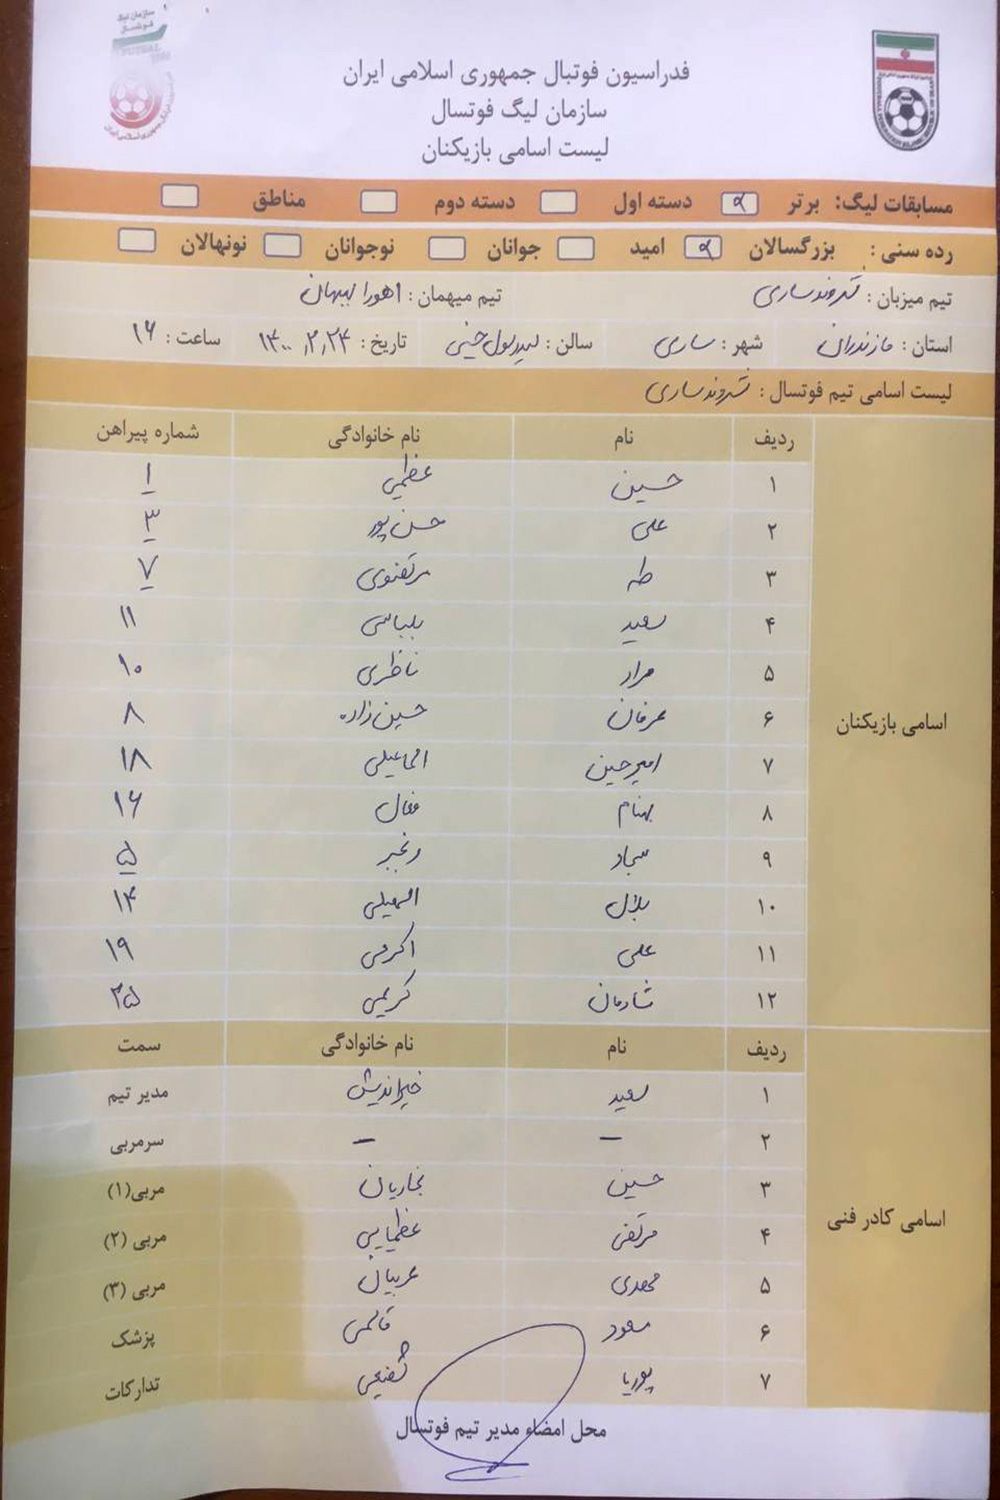 سازمان لیگ
فوتسال
FUTSAL
فدراسیون فوتبال جمهوری اسلامی ایران
سازمان لیگ فوتسال
لیست اسامی بازیکنان
مسابقات لیگ: برتر دسته اول دسته دوم مناطق
رده سنی: بزرگسالان امید جوانان نوجوانان نونهالان
تیم میزبان: شهروند ساری تیم میهمان: اهورا بهبهان
استان: مازندران شهر: ساری سالن: سید رسول حسینی تاریخ: ۱۴۰۰/۲/۲۴ ساعت: ۱۶
لیست اسامی تیم فوتسال: شهروند ساری
ردیف نام نام خانوادگی شماره پیراهن
۱ حسین عظیمی ۱
۲ علی حسن پور ۳
۳ طه مرتضوی ۷
۴ سعید بلباسی ۱۱
۵ مراد ناظری ۱۰
۶ عرفان حسین زاده ۸
اسامی بازیکنان
۷ امیرحسین اسماعیلی ۱۸
۸ بهنام فعال ۱۶
۹ سجاد رنجبر ۵
۱۰ بلال اسمعیلی ۱۴
۱۱ علی اکرمی ۱۹
۱۲ شادمان کریمی ۲۵
ردیف نام نام خانوادگی سمت
۱ سعید خیراندیش مدیر تیم
۲ – – سرمربی
۳ حسین نجاریان مربی(۱)
اسامی کادر فنی
۴ مرتضی عظیمایی مربی (۲)
۵ مهدی عربیان مربی (۳)
۶ مسعود قائمی پزشک
۷ پوریا شفیعی تدارکات
محل امضاء مدیر تیم فوتسال